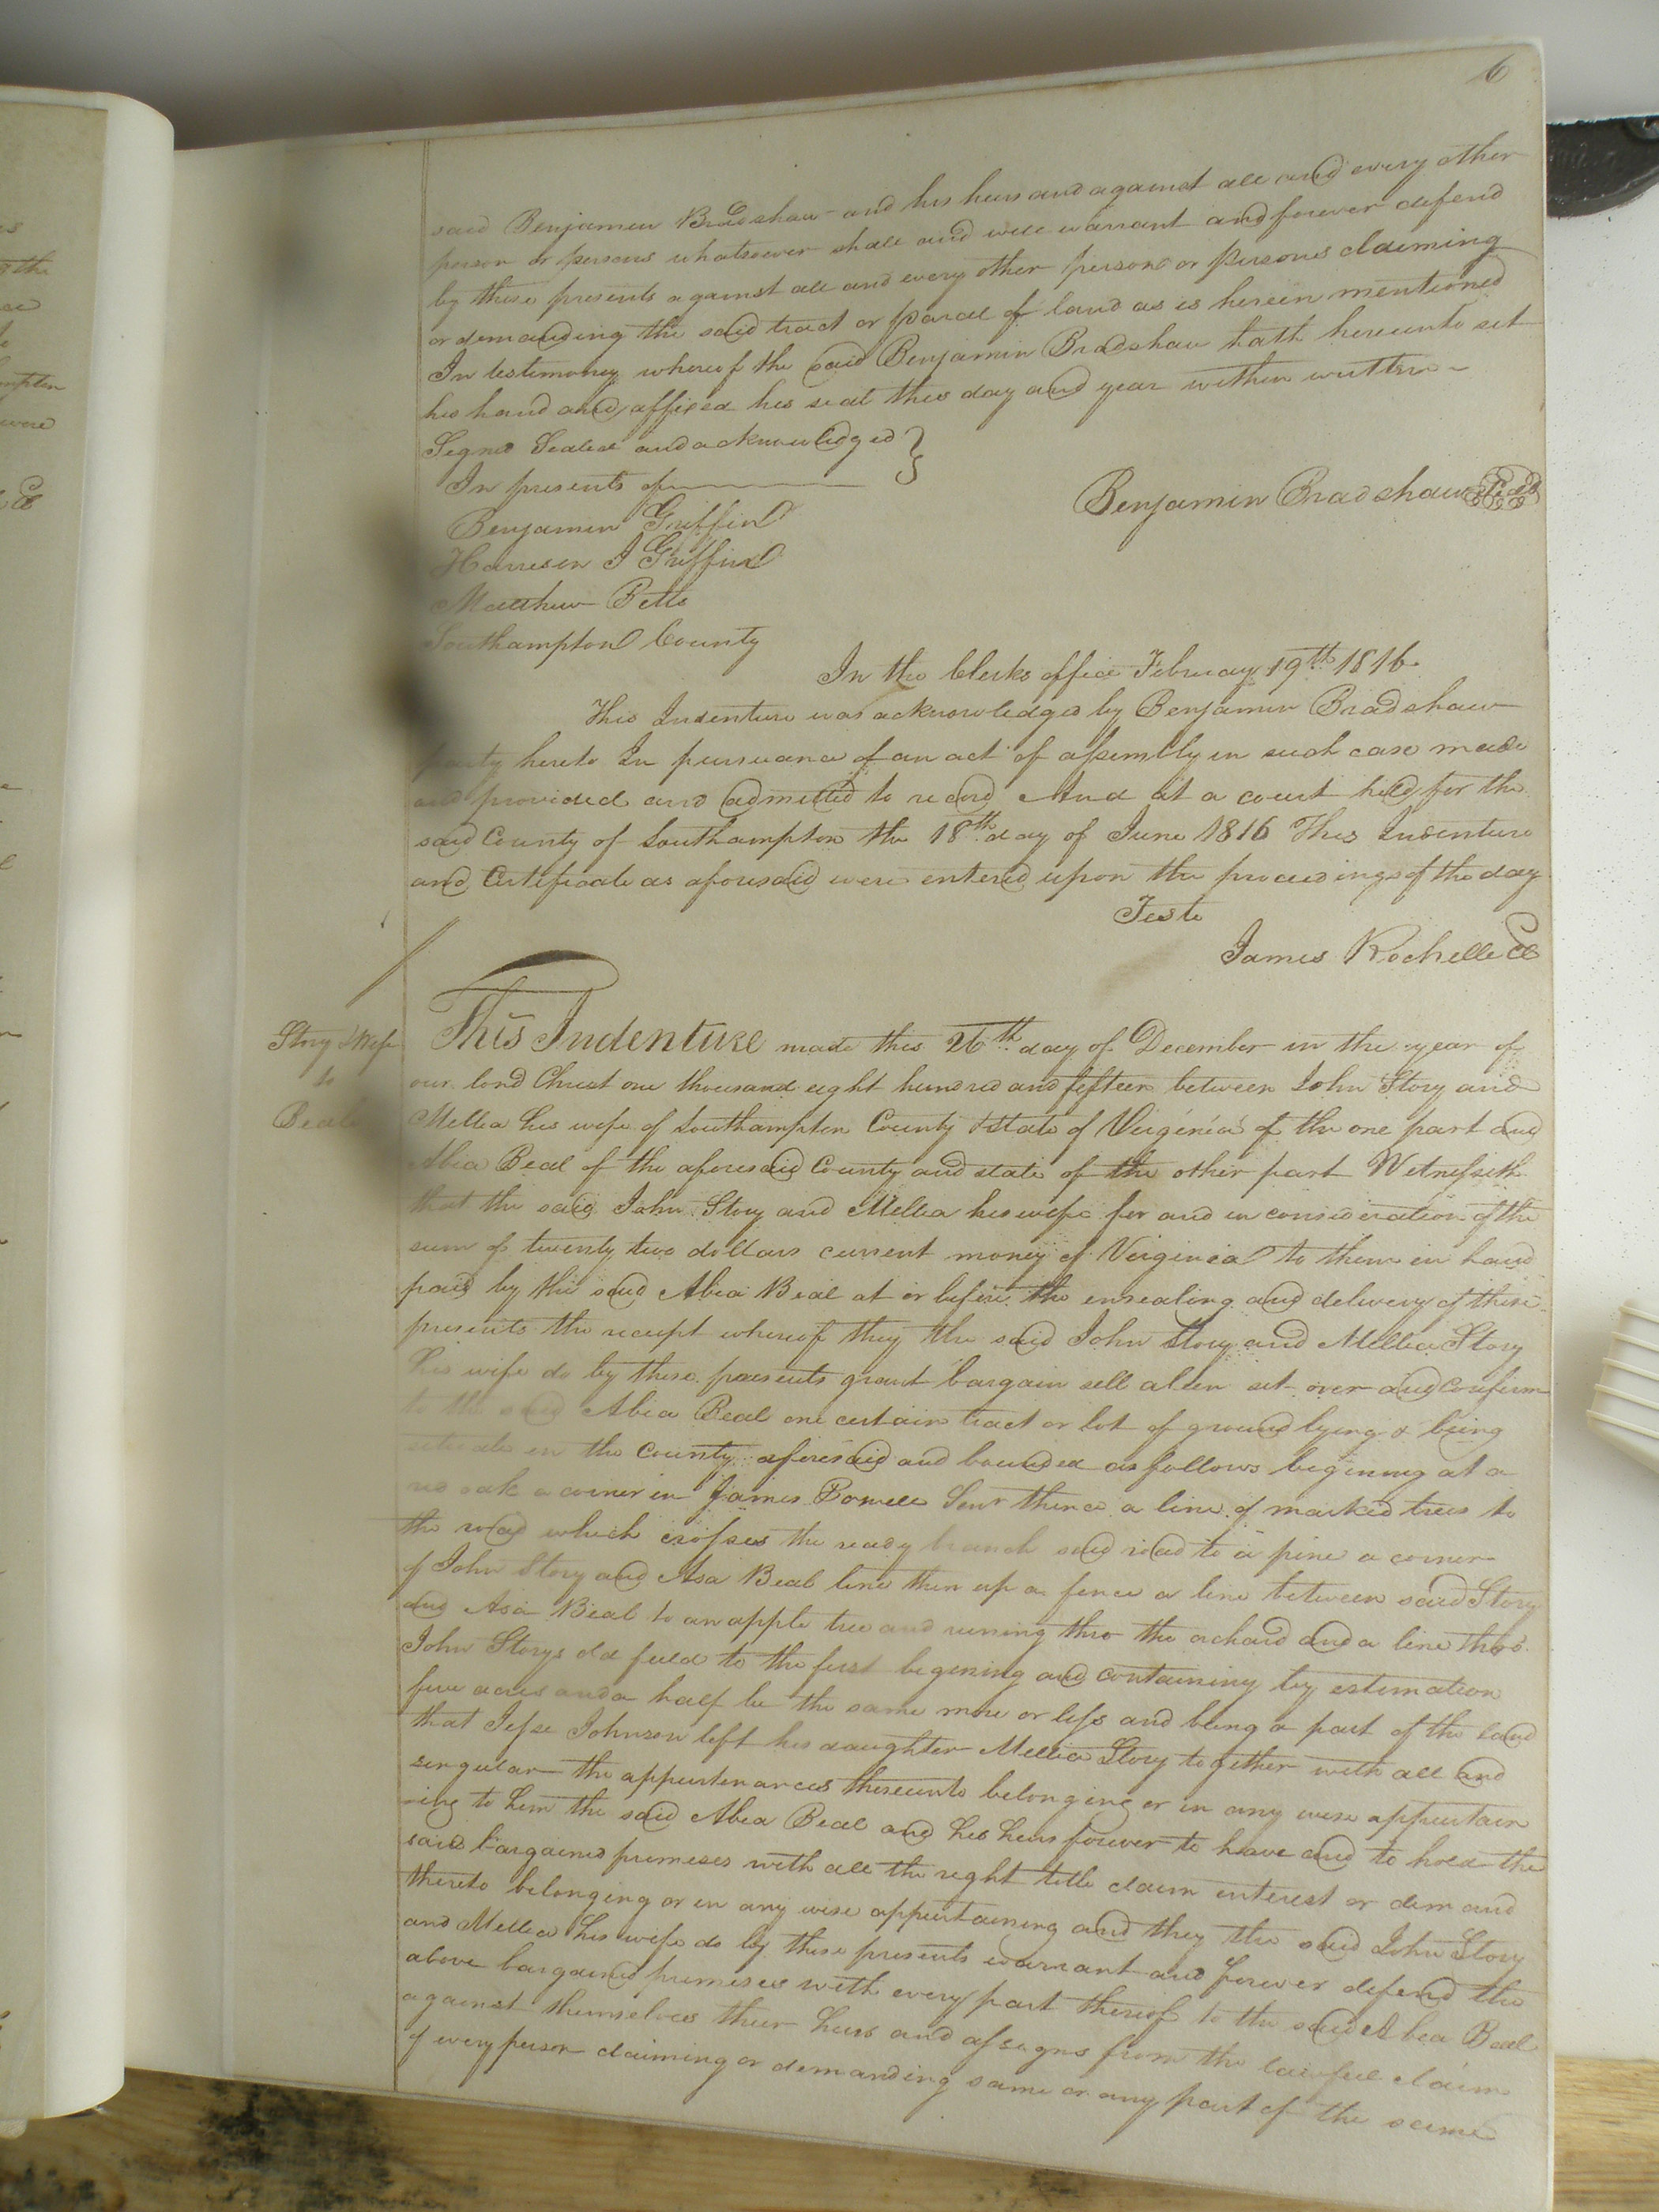 6
said Benjamin Bradshaw and his heirs and against all and every other
person or persons whatsoever shall and will warrant and forever defend
by these presents against all and every other person or persons claiming
or demanding the said tract or parcel of land as is herein mentioned
In testimoney whereof the said Benjamin Bradshaw hath hereunto set
his hand and affixed his seal this day and year within written
Signd Sealed and acknowledged
In presents of
Benjamin Bradshaw
Benjamin Griffin
Harrison J Griffin
Matthew
Southampton County
In the Clerks office February 19th 1816
This Indenture was acknowledged by Benjamin Bradshaw
party hereto In pursuance of an act of assembly in such case made
and provided and admitted to record And at a court held for the
said County of Southampton the 18th day of June 1816 This Indenture
and Certificate as aforesaid were entered upon the proceedings of the day
Teste
James Rochelle Cl
Story & Wife
to
Beal
This Indenture made this 26th day of December in the year of
our lord Christ one thousand eight hundred and fifteen between John Story and
Mellia his wife of Southampton County & State of Virginia of the one part and
Abia Beal of the aforesaid County and state of the other part Witnesseth
that the said John Story and Mellia his wife for and in consideration of the
sum of twenty two dollars current money of Virginia to them in hand
paid by the said Abia Beal at or before the ensealing and delivery of these
presents the receipt whereof they the said John Story and Mellia Story
his wife do by these presents grant bargain sell alien set over and confirm
to the said Abia Beal one certain tract or lot of ground lying & being
situate in the County aforesaid and bounded as follows begining at a
red oak a corner in James Powell Senr thence a line of marked trees to
the road which crosses the reedy branch said road to a pine a corner
of John Story and Asa Beal line then up a fence a line between said Story
and Asa Beal to an apple tree and runing thro the orchard and a line thro
John Storys old field to the first begining and containing by estimation
five acres and a half be the same more or less and being a part of the land
that Jesse Johnson left his daughter Mellia Story together with all and
singular the appurtenances thereunto belonging or in any wise appurtain
-ing to him the said Abia Beal and his heirs forever to have and to hold the
said bargained premises with all the right title claim interest or demand
thereto belonging or in any wise appurtaining and they the said John Story
and Mellia his wife do by these presents warrant and forever defend the
above bargained premises with every part thereof to the said Abia Beal
against themselves their heirs and assigns from the lawful claim
of every person claiming or demanding same or any part of the same